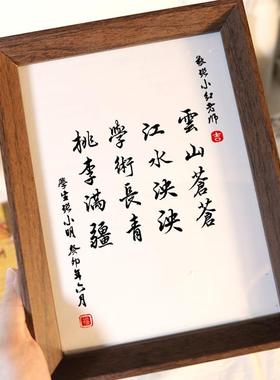 敬贈小紅老师
吉
雲山蒼蒼
江水泱泱
學術長青
桃李滿疆
學生張小明 癸卯年六月